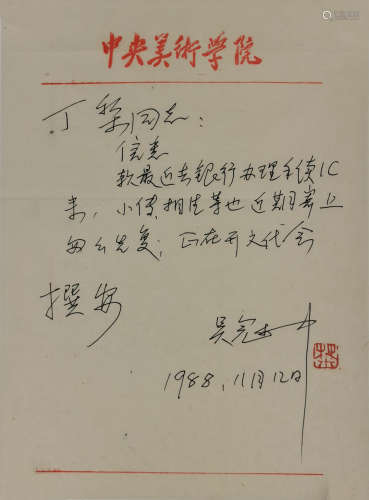 中央美術学院
丁黎同志：
信悉
款最近去银行办理手续汇
来，小传、相片等也近期寄上
匆匆先复，正在开文代会
撰安
吴冠中
1988，11月12日